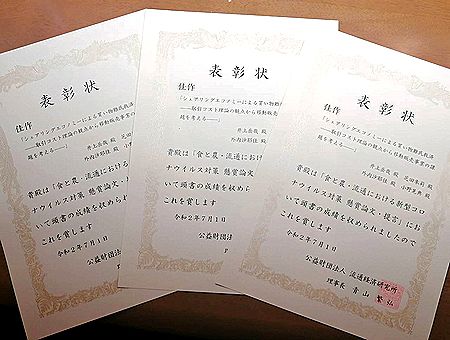 表彰状
佳作
「シェアリングエコノミーによる買い物難民救済
――取引コスト理論の観点から移動販売
題を考える――」
井上岳哉 殿
殿
貴殿は「食と農・流通における
ナウイルス対策 懸賞論文・
いて頭書の成績を収めら
これを賞します
令和2年7月1日
公益財団法
表彰状
佳作
「シェアリングエコノミーによる買い物難
――取引コスト理論の観点から移動販売
題を考える――」
井上岳哉 殿
殿
貴殿は「食と農・流通におけ
ナウイルス対策 懸賞論文
いて頭書の成績を収め
これを賞します
令和2年7月1
公益財団法
表彰状
佳作
「シェアリングエコノミーによる買い物難民救済
――取引コスト理論の観点から移動販売事業の課
題を考える――」
井上岳哉 殿
殿
貴殿は「食と農・流通における新型コロ
ナウイルス対策 懸賞論文・提言」にお
いて頭書の成績を収められましたので
これを賞します
令和2年7月1日
公益財団法人 流通経済研究所
理事長 青山 繁弘